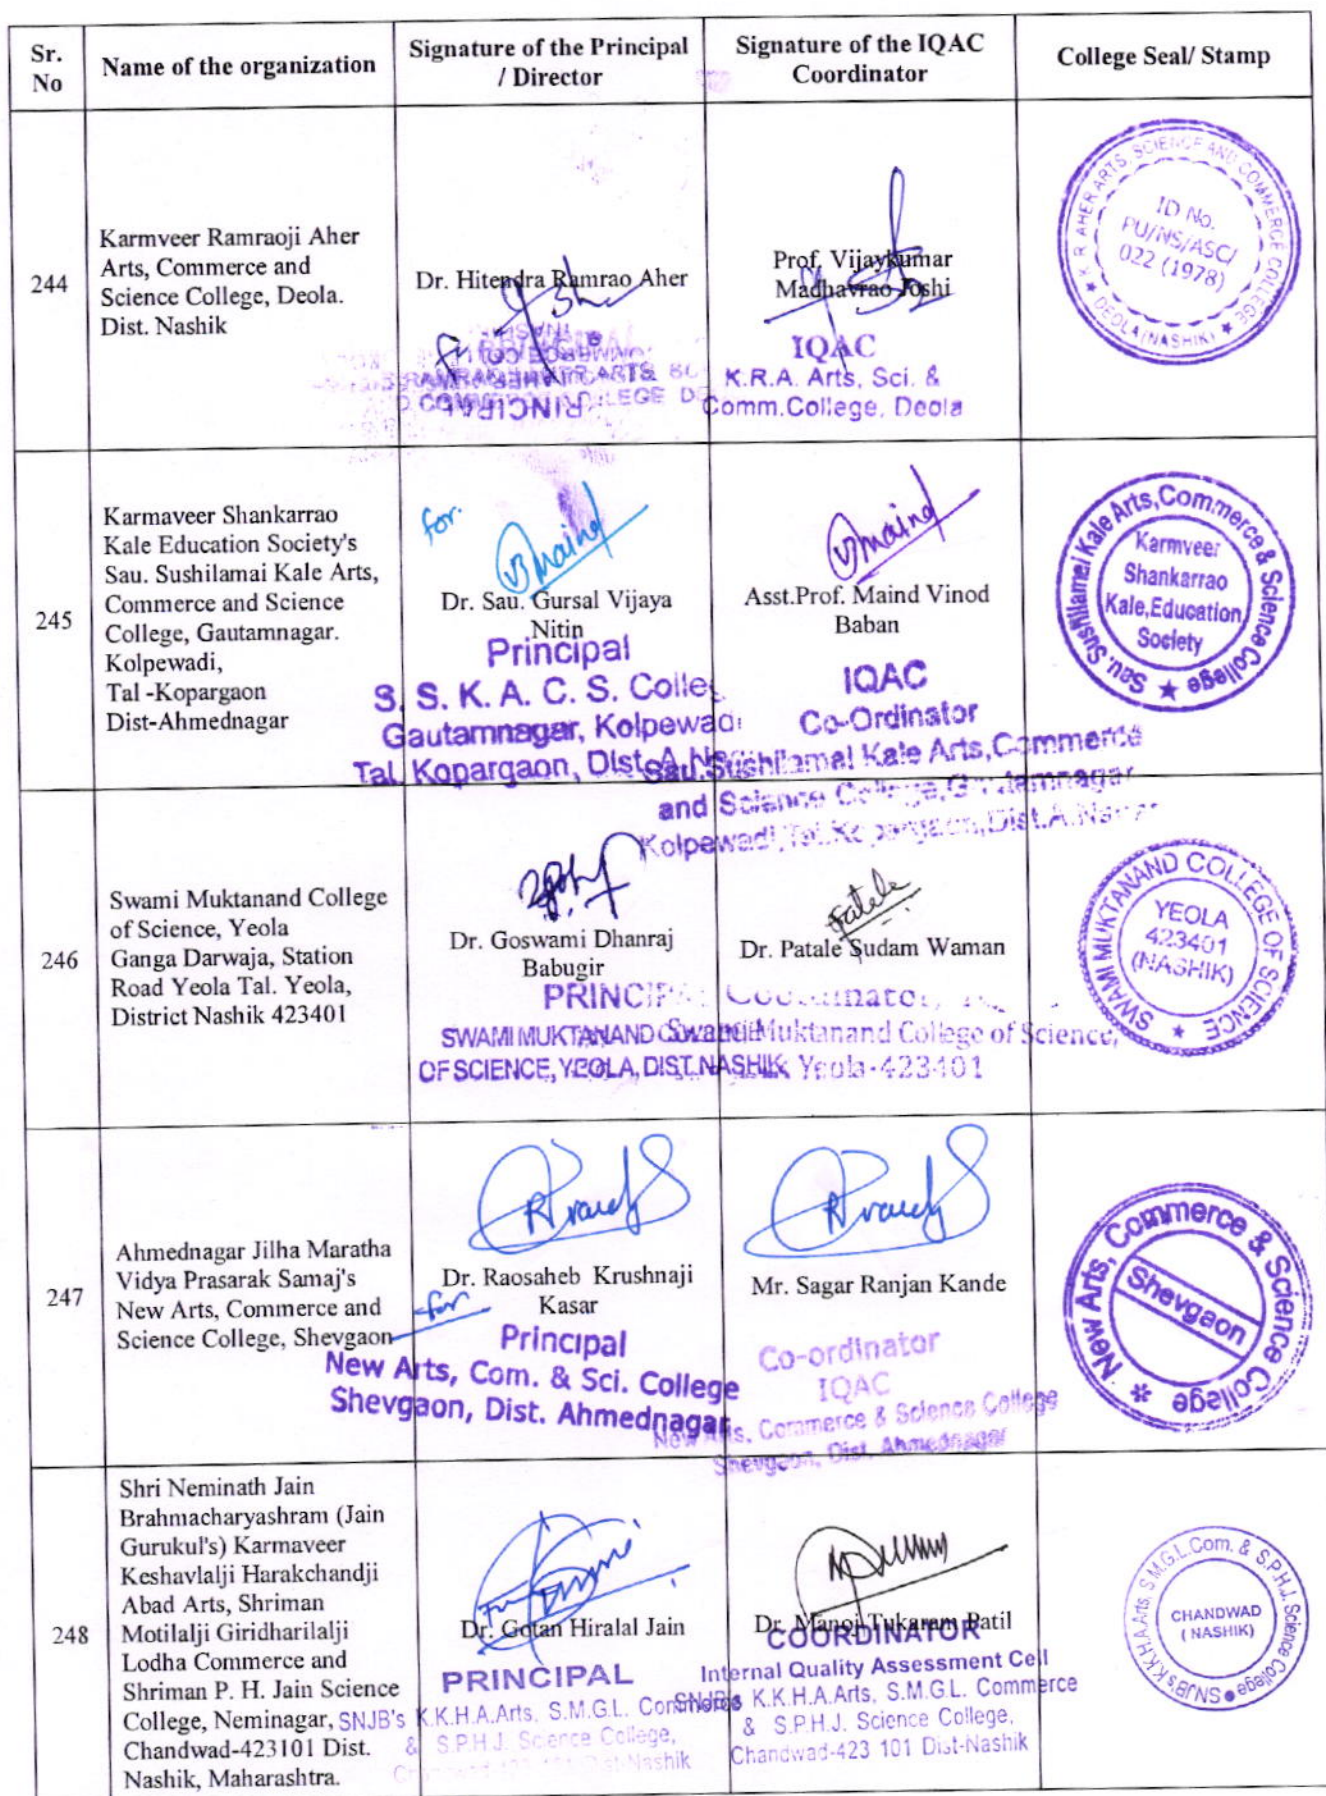 Sr.
No
Name of the organization
Signature of the Principal
/ Director
Signature of the IQAC
Coordinator
College Seal/ Stamp
244
Karmveer Ramraoji Aher
Arts, Commerce and
Science College, Deola.
Dist. Nashik
Dr. Hitendra Ramrao Aher
PRINCIPAL
Prof. Vijaykumar
Madhavrao Joshi
IQAC
K.R.A. Arts, Sci. &
Comm.College, Deola
K. R. AHER ARTS, SCIENCE AND COMMERCE COLLEGE
★ DEOLA (NASHIK) ★
ID No.
PU/NS/ASC/
022 (1978)
245
Karmaveer Shankarrao
Kale Education Society's
Sau. Sushilamai Kale Arts,
Commerce and Science
College, Gautamnagar.
Kolpewadi,
Tal -Kopargaon
Dist-Ahmednagar
for.
VBmaind
Dr. Sau. Gursal Vijaya
Nitin
Principal
S. S. K. A. C. S. Colleg
Gautamnagar, Kolpewadi
Tal. Kopargaon, Dist. A. N
VBmaind
Asst.Prof. Maind Vinod
Baban
IQAC
Co-Ordinator
Sau.Sushilamai Kale Arts,Commerce
and Science College,Gautamnagar
Kolpewadi,Tal.Kopargaon,Dist.A.Nagar
Sau. Sushilamai Kale Arts,Commerce & Science College ★
Karmveer
Shankarrao
Kale,Education
Society
246
Swami Muktanand College
of Science, Yeola
Ganga Darwaja, Station
Road Yeola Tal. Yeola,
District Nashik 423401
Dr. Goswami Dhanraj
Babugir
PRINCIPAL
SWAMI MUKTANAND
OF SCIENCE, YEOLA, DIST.NASHIK
Patale
Dr. Patale Sudam Waman
Coordinator,
Swami Muktanand College of Science,
Yeola-423401
SWAMI MUKTANAND COLLEGE OF SCIENCE ★
YEOLA
423401
(NASHIK)
247
Ahmednagar Jilha Maratha
Vidya Prasarak Samaj's
New Arts, Commerce and
Science College, Shevgaon
Dr. Raosaheb Krushnaji
Kasar
for
Principal
New Arts, Com. & Sci. College
Shevgaon, Dist. Ahmednagar
Mr. Sagar Ranjan Kande
Co-ordinator
IQAC
New Arts, Commerce & Science College
Shevgaon, Dist. Ahmednagar
New Arts, Commerce & Science College
Shevgaon
248
Shri Neminath Jain
Brahmacharyashram (Jain
Gurukul's) Karmaveer
Keshavlalji Harakchandji
Abad Arts, Shriman
Motilalji Giridharilalji
Lodha Commerce and
Shriman P. H. Jain Science
College, Neminagar,
Chandwad-423101 Dist.
Nashik, Maharashtra.
Dr. Gotan Hiralal Jain
PRINCIPAL
SNJB's K.K.H.A.Arts, S.M.G.L. Commerce
& S.P.H.J. Science College,
Dr. Manoj Tukaram Patil
COORDINATOR
Internal Quality Assessment Cell
SNJB's K.K.H.A.Arts, S.M.G.L. Commerce
& S.P.H.J. Science College,
Chandwad-423 101 Dist-Nashik
SNJB's K.K.H.A.Arts, S.M.G.L.Com. & S.P.H.J. Science College
CHANDWAD
( NASHIK)